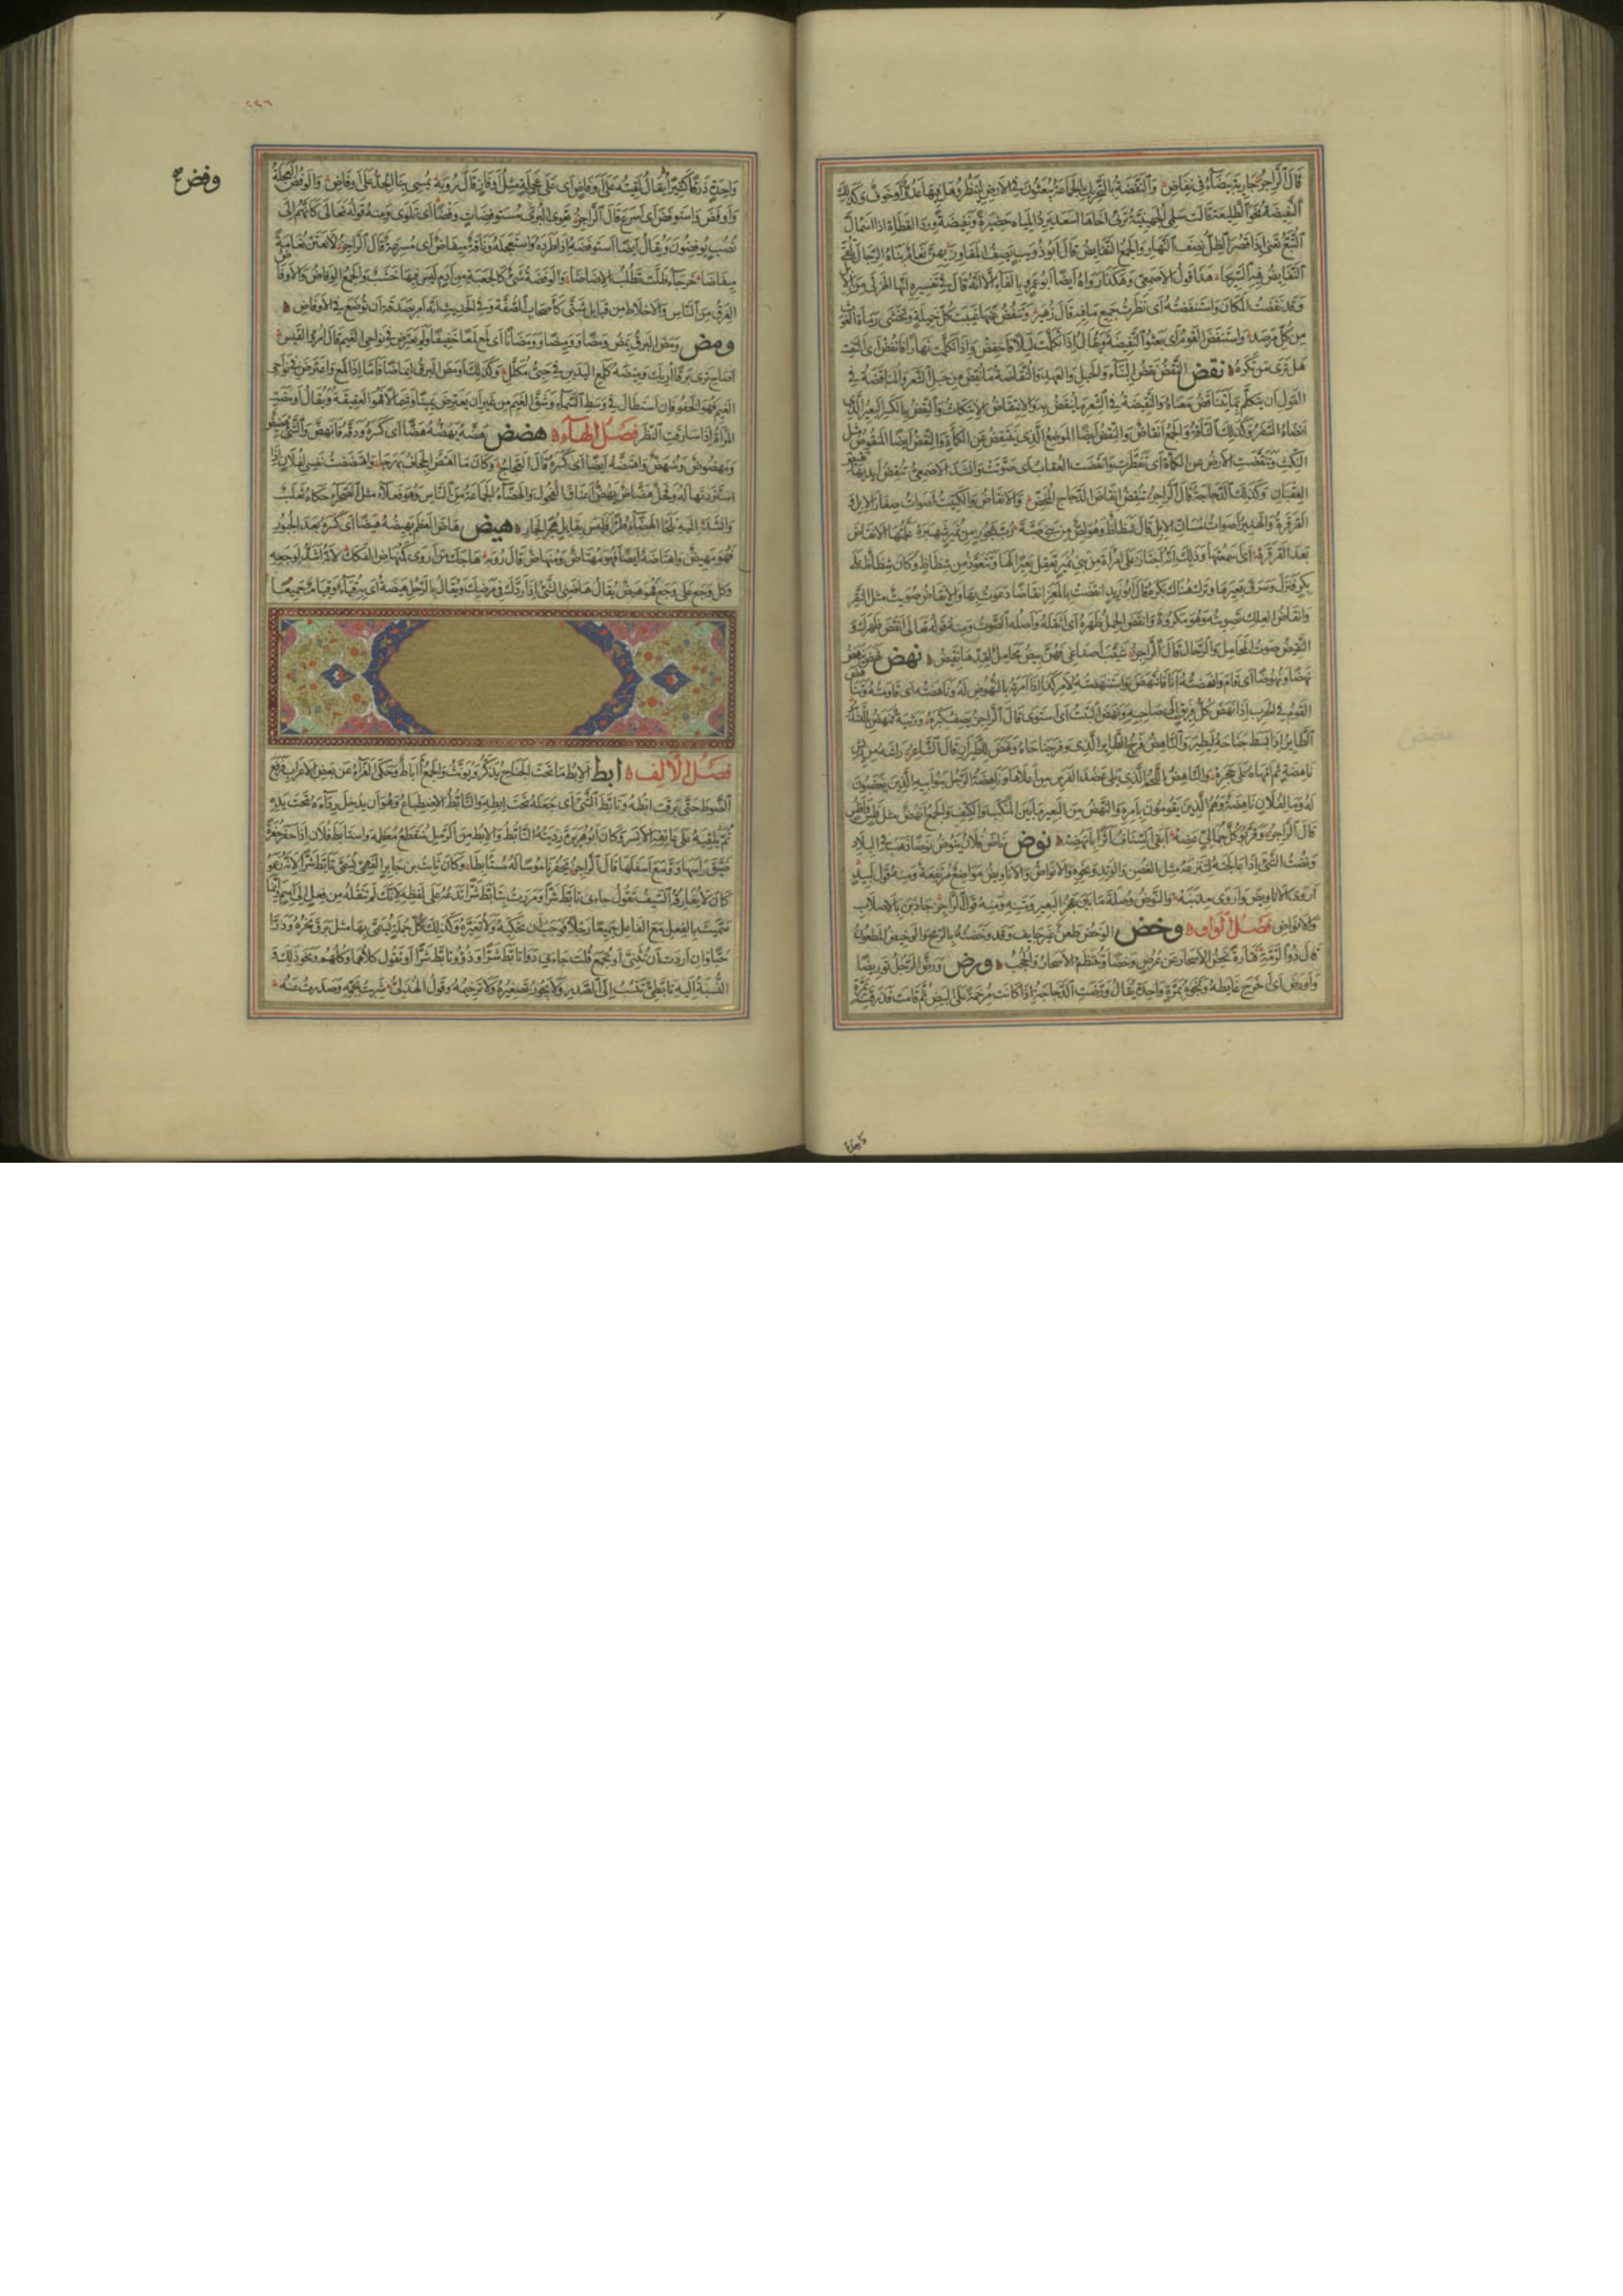 قال الراجز جارية بيضاء في نفاض والنفضة بالتحريك الجماعة يبعثون في الارض لينظروا هل فيها عدو او خوف وكذلك
النفيضة نحو الطليعة قالت سلمى الجهنية ترثي اخاها اسعد يرد المياه حضيرة ونفيضة ورد القطاة اذا اسمأل
التبع تعني اذا قصر الظل نصف النهار والجمع النفايض قال ابو ذؤيب يصف المفاوز بهن نعام بناه الرجال تلقي
النفايض فيه السريحا هذا قول الاصمعي وهكذا رواه ايضا ابو عمرو بالفاء الا انه قال في تفسيره انها الهزلى من الابل
وقد نفضت المكان واستنفضته اى نظرت جميع ما فيه قال زهير وتنفض عنها غيب كل خميلة وتخشى رماة الغوث
من كل مرصد واستنفض القوم اى بعثوا النفيضة ويقال اذا تكلمت ليلا فاخفض واذا تكلمت نهارا فانفض اى التفت
هل ترى من تكره نقض النقض نقض البناء والحبل والعهد والنقاضة ما نقض من حبل الشعر والمناقضة في
القول ان يتكلم بما يتناقض معناه والنقيضة في الشعر ما ينقض به والانتقاض الانتكاث والنقض بالكسر البعير الذى
انضاه السفر وكذلك الناقة والجمع انقاض والنقض ايضا الموضع الذى ينتقض عن الكمأة والنقض ايضا المنقوض مثل
النكث وتنقضت الارض عن الكمأة اى تفطرت وانقضت العقاب اى صوتت وانشد الاصمعي تنقض ايديها نقيض
العقبان وكذلك الدجاجة قال الراجز تنقض انقاض الدجاج المخض والانقاض والكتيت اصوات صغار الابل و
القرقرة والهدير اصوات مسان الابل قال شظاظ وهو لص من بني ضبة رب عجوز من نمير شهبره علمتها الانقاض
بعد القرقره اى سمعتها وذلك انه اجتاز على امراة من بني نمير تعقل بعيرا لها وتتعوذ من شظاظ وكان شظاظ على
بكر فنزل وسرق بعيرها وترك هناك بكره قال ابو زيد انقضت بالمعز انقاضا دعوت بها والانقاض صويت مثل النقر
وانقاض العلك تصويته وهو مكروه وانقض الحمل ظهره اى اثقله واصله الصوت ومنه قوله تعالى انقض ظهرك و
النقيض صوت المحامل والرحال قال الراجز شيب اصداغي فهن بيض محامل لقدها نقيض نهض نهض ينهض
نهضا ونهوضا اى قام وانهضته انا فانتهض واستنهضته لامر كذا اذا امرته بالنهوض له وناهضته اى قاومته وتناهض
القوم في الحرب اذا نهض كل فريق الى صاحبه ونهض النبت اى استوى قال الراجز يصف كبره ورثية تنهض بالتشدد
الطاير اذا بسط جناحه ليطير والناهض فرخ الطاير الذى وفر جناحاه ونهض للطيران قال الشاعر راشه من ريش
ناهضة ثم امهاه على حجره والناهض اللحم الذى يلي عضد الفرس من اعلاها وناهضة الرجل بنو ابيه الذين يغضبون
له وما لفلان ناهضة وهم الذين يقومون بامره والنهض من البعير ما بين المنكب والكتف والجمع انهض مثل فلس وافلس
قال الراجز وقربوا كل جمالي عضه ابقى السناف اثرا بانهضه نوض ناض فلان ينوض نوضا ذهب في البلاد
ونضت الشيء اذا عالجته لتنزعه مثل الغصن والوتد ونحوه والانواض والاناويض مواضع مرتفعة ومنه قول لبيد
اروى الاناويض واروى مذنبه والنوض وصلة ما بين عجز البعير ومتنه ومنه قول الراجز جاذبن بالاصلاب
والانواض فصل الواو وخض الوخض طعن غير جايف وقد وخضته بالرمح والوخيض المطعون
قال ذو الرمة فتارة يخض الاسحار عن عرض وخضا وتنتظم الاسحار والحجب ورض ورض الرجل توريضا
واورض اى اخرج غايطه ونجوه بمرة واحدة يقال ورضت الدجاجة اذا كانت مرخمة على البيض ثم قامت فذرقت بمرة
٢٢٦
وفض
واحدة ذرقا كثيرا يقال لقيته على اوفاض اى على عجلة مثل اوفاز قال رؤبة يمسي بنا الجد على اوفاض والوفض العجلة
واوفض واستوفض اى اسرع قال الراجز تعوي البرى مستوفضات وفضا اى تلوى ومنه قوله تعالى كانهم الى
نصب يوفضون ويقال ايضا استوفضه اذا طرده واستعجله وناقة ميفاض اى مسرعة قال الراجز لانعتن نعامة
ميفاضا خرجاء ظلت تطلب الاضاضا والوفضة شيء كالجعبة من ادم ليس فيها خشب والجمع الوفاض والاوفاض
الفرق من الناس والاخلاط من قبايل شتى كاصحاب الصفة وفي الحديث انه امر بصدقة ان توضع في الاوفاض
ومض ومض البرق يمض ومضا ووميضا وومضانا اى لمع لمعا خفيفا ولم يعترض في نواحى الغيم قال امرؤ القيس
اصاح ترى برقا اريك وميضه كلمع اليدين في حبي مكلل وكذلك اومض البرق ايماضا فاما اذا لمع واعترض في نواحى
الغيم فهو الخفو فان استطال في وسط السماء وشق الغيم من غير ان يعترض يمينا وشمالا فهو العقيقة ويقال اومضت
المراة اذا سارقت النظر فصل الهاء هضض هضه يهضه هضا اى كسره ودقه فانهض والشيء هضيض
ومهضوض ومنهض واهتضه ايضا اى كسره قال العجاج وكان ما اهتض الجحاف بهرجا واهتضضت نفسي لفلان اذا
استزدتها له وفحل هضاض يهض اعناق الفحول والهضاء الجماعة من الناس وهو فعلاء مثل الصحراء حكاه ثعلب
وانشد اليه تلجأ الهضاء طرا فليس بقايل هجرا لجار هيض هاض العظم يهيضه هيضا اى كسره بعد الجبور
فهو مهيض واهتاضه ايضا فهو مهتاض ومنهاض قال رؤبة هاجك من اروى كمنهاض الفكك لانه اشد لوجعه
وكل وجع على وجع فهو هيض يقال هاضني الشيء اذا ردك في مرضك ويقال بالرجل هيضة اى به قياء وقيام جميعا
فصل الالف ابط الابط ما تحت الجناح يذكر ويونث والجمع آباط وحكى الفراء عن بعض الاعراب فرفع
السوط حتى برقت ابطه وتابط الشيء اى جعله تحت ابطه والتأبط الاضطباع وهو ان يدخل رداءه تحت يده
ثم يلقيه على عاتقه الايسر وكان ابو هريرة رديته التابط والابط من الرمل منقطع معظمه واستابط فلان اذا حفر حفرة
ضيق راسها ووسع اسفلها قال الراجز يحفر ناموسا له مستأبطا وكان ثابت بن جابر الفهمي يسمى تابط شرا لانه زعموا
كان لا يفارقه السيف تقول جاءني تابط شرا ومررت بتابط شرا تدعه على لفظه لانك لم تنقله من فعل الى اسم وانما
سميت بالفعل مع الفاعل جميعا رجلا فوجب ان تحكيه ولا تغيره وكذلك كل جملة يسمى بها مثل برق نحره وذرى
حبا وان اردت ان تثني او تجمع قلت جاءني ذوا تابط شرا وذوو تابط شرا او تقول كلاهما وكلهم ونحو ذلك
النسبة اليه تابطي تنسب الى الصدر ولا يجوز تصغيره ولا ترخيمه وقول الهذلي شربت بجمه وصدرت عنه